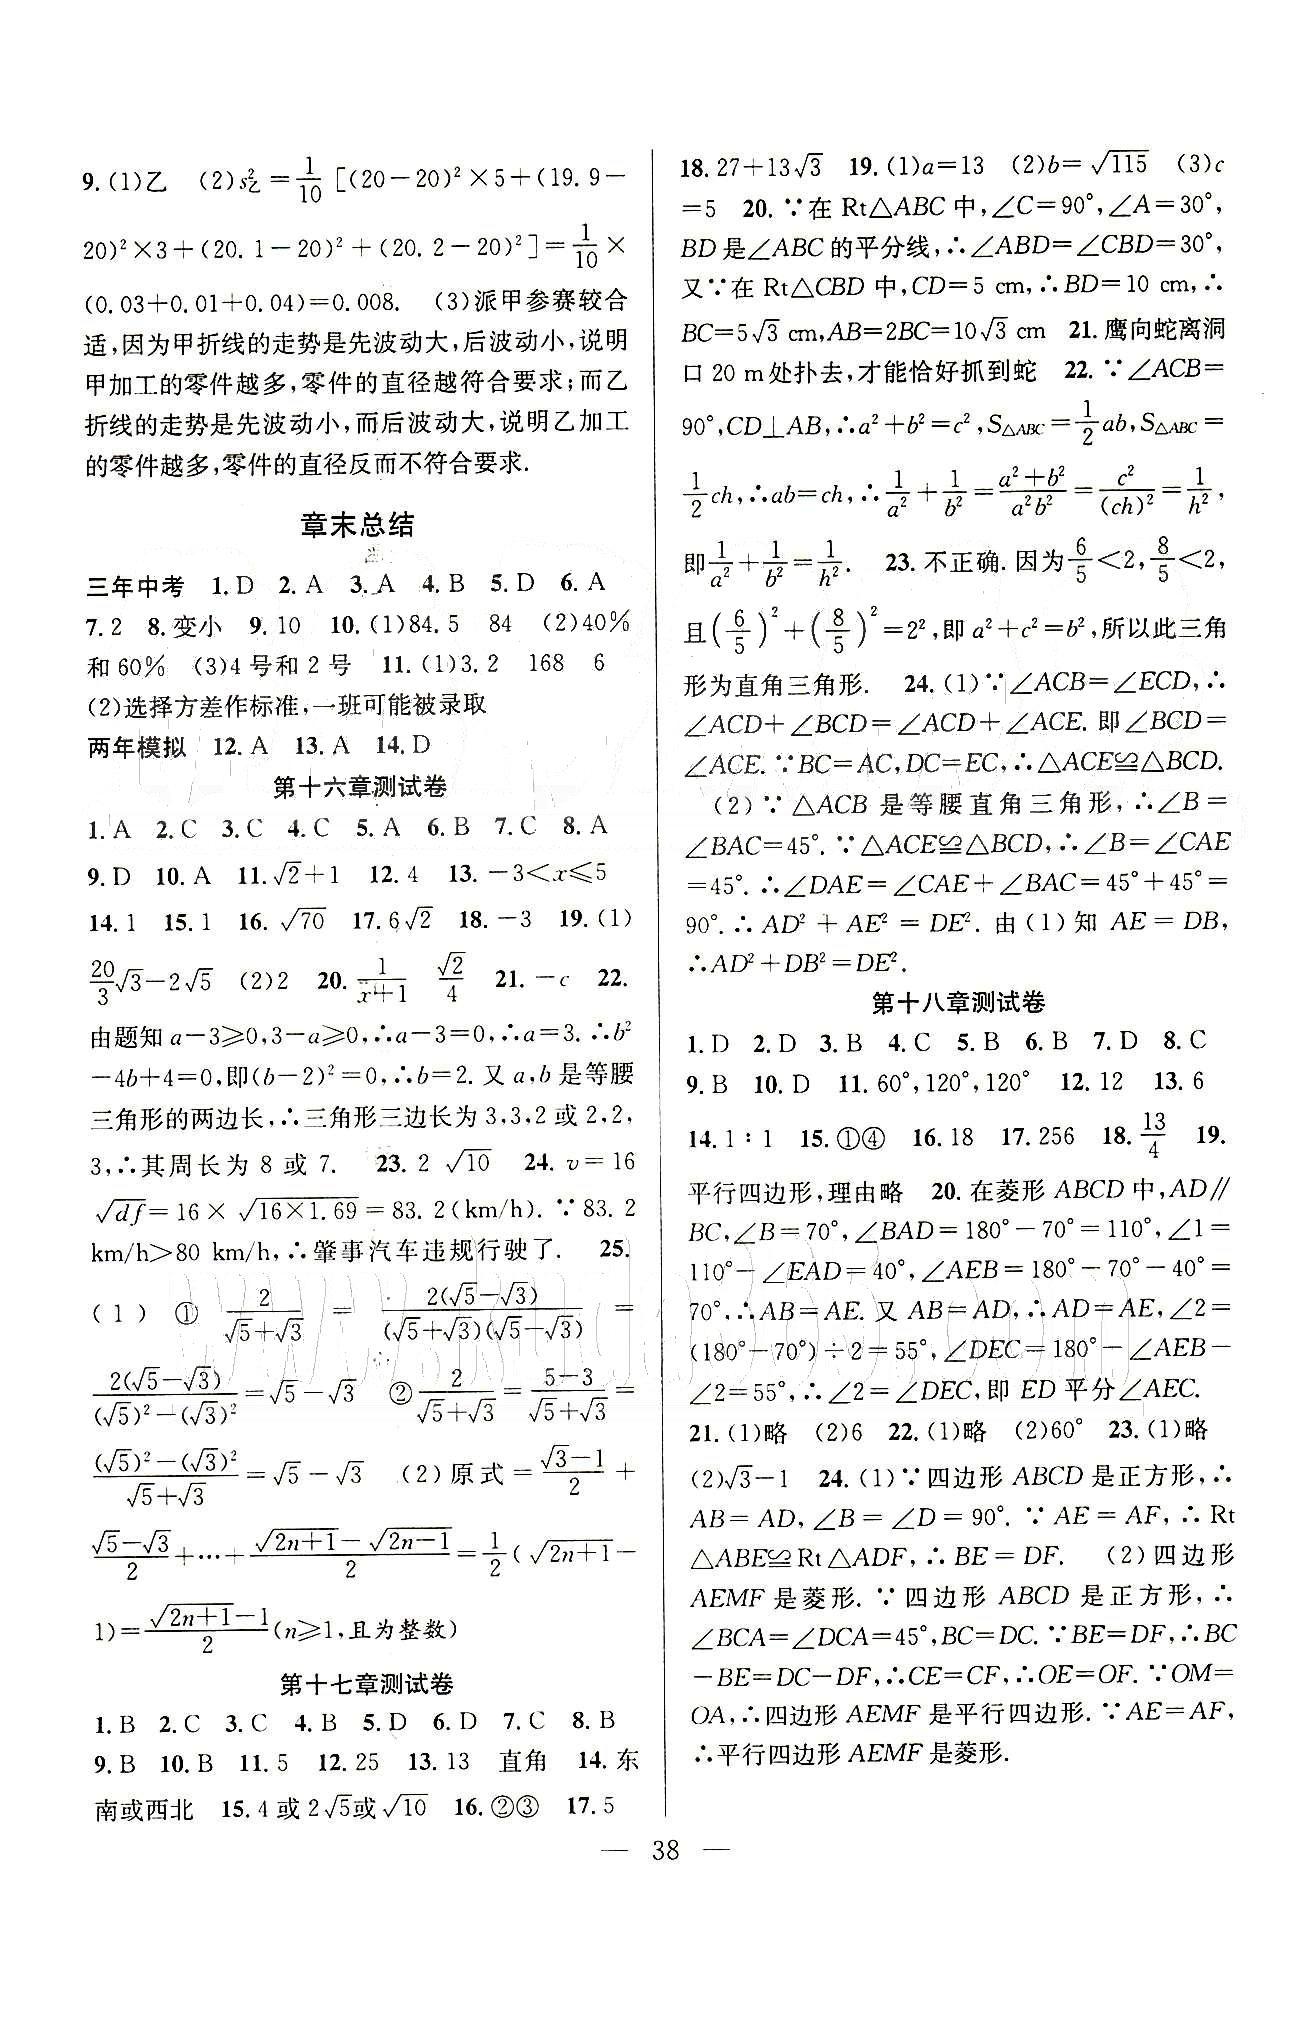 9.(1)乙 (2)s²乙=1/10[(20-20)²×5+(19.9-
20)²×3+(20.1-20)²+(20.2-20)²]=1/10×
(0.03+0.01+0.04)=0.008. (3)派甲参赛较合
适,因为甲折线的走势是先波动大,后波动小,说明
甲加工的零件越多,零件的直径越符合要求;而乙
折线的走势是先波动小,而后波动大,说明乙加工
的零件越多,零件的直径反而不符合要求.
章末总结
三年中考 1.D 2.A 3.A 4.B 5.D 6.A
7.2 8.变小 9.10 10.(1)84.5 84 (2)40%
和60% (3)4号和2号 11.(1)3.2 168 6
(2)选择方差作标准,一班可能被录取
两年模拟 12.A 13.A 14.D
第十六章测试卷
1.A 2.C 3.C 4.C 5.A 6.B 7.C 8.A
9.D 10.A 11.√2+1 12.4 13.-3<x≤5
14.1 15.1 16.√70 17.6√2 18.-3 19.(1)
20/3√3-2√5 (2)2 20.1/(x+1) √2/4 21.-c 22.
由题知a-3≥0,3-a≥0,∴a-3=0,∴a=3.∴b²
-4b+4=0,即(b-2)²=0,∴b=2.又a,b是等腰
三角形的两边长,∴三角形三边长为3,3,2或2,2,
3,∴其周长为8或7. 23.2√10 24.v=16
√df=16×√(16×1.69)=83.2(km/h).∵83.2
km/h>80 km/h,∴肇事汽车违规行驶了. 25.
(1) ① 2/(√5+√3) = 2(√5-√3)/((√5+√3)(√5-√3)) =
2(√5-√3)/((√5)²-(√3)²)=√5-√3 ②2/(√5+√3)=(5-3)/(√5+√3)=
((√5)²-(√3)²)/(√5+√3)=√5-√3 (2)原式=(√3-1)/2+
(√5-√3)/2+…+(√(2n+1)-√(2n-1))/2=1/2(√(2n+1)-
1)=(√(2n+1)-1)/2(n≥1,且为整数)
第十七章测试卷
1.B 2.C 3.C 4.B 5.D 6.D 7.C 8.B
9.B 10.B 11.5 12.25 13.13 直角 14.东
南或西北 15.4或2√5或√10 16.②③ 17.5
18.27+13√3 19.(1)a=13 (2)b=√115 (3)c
=5 20.∵在Rt△ABC中,∠C=90°,∠A=30°,
BD是∠ABC的平分线,∴∠ABD=∠CBD=30°,
又∵在Rt△CBD中,CD=5 cm,∴BD=10 cm,∴
BC=5√3 cm,AB=2BC=10√3 cm 21.鹰向蛇离洞
口20 m处扑去,才能恰好抓到蛇 22.∵∠ACB=
90°,CD⊥AB,∴a²+b²=c²,S△ABC=1/2ab,S△ABC=
1/2ch,∴ab=ch,∴1/a²+1/b²=(a²+b²)/(a²b²)=c²/(ch)²=1/h²,
即1/a²+1/b²=1/h². 23.不正确.因为6/5<2,8/5<2,
且(6/5)²+(8/5)²=2²,即a²+c²=b²,所以此三角
形为直角三角形. 24.(1)∵∠ACB=∠ECD,∴
∠ACD+∠BCD=∠ACD+∠ACE.即∠BCD=
∠ACE.∵BC=AC,DC=EC,∴△ACE≌△BCD.
(2)∵△ACB是等腰直角三角形,∴∠B=
∠BAC=45°.∵△ACE≌△BCD,∴∠B=∠CAE
=45°.∴∠DAE=∠CAE+∠BAC=45°+45°=
90°.∴AD²+AE²=DE².由(1)知AE=DB,
∴AD²+DB²=DE².
第十八章测试卷
1.D 2.D 3.B 4.C 5.B 6.B 7.D 8.C
9.B 10.D 11.60°,120°,120° 12.12 13.6
14.1∶1 15.①④ 16.18 17.256 18.13/4 19.
平行四边形,理由略 20.在菱形ABCD中,AD∥
BC,∠B=70°,∠BAD=180°-70°=110°,∠1=
110°-∠EAD=40°,∠AEB=180°-70°-40°=
70°,∴AB=AE.又AB=AD,∴AD=AE,∠2=
(180°-70°)÷2=55°,∠DEC=180°-∠AEB-
∠2=55°,∴∠2=∠DEC,即ED平分∠AEC.
21.(1)略 (2)6 22.(1)略 (2)60° 23.(1)略
(2)√3-1 24.(1)∵四边形ABCD是正方形,∴
AB=AD,∠B=∠D=90°.∵AE=AF,∴Rt
△ABE≌Rt△ADF,∴BE=DF. (2)四边形
AEMF是菱形.∵四边形ABCD是正方形,∴
∠BCA=∠DCA=45°,BC=DC.∵BE=DF,∴BC
-BE=DC-DF,∴CE=CF,∴OE=OF.∵OM=
OA,∴四边形AEMF是平行四边形.∵AE=AF,
∴平行四边形AEMF是菱形.
— 38 —